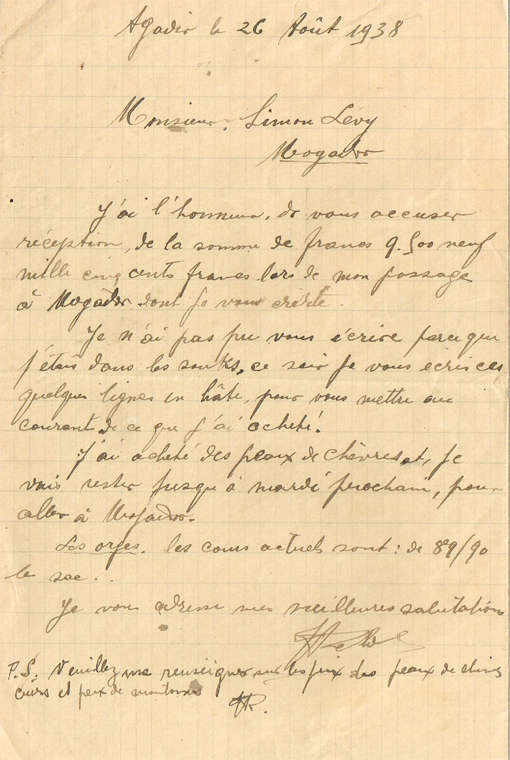 Agadir le 26 Août 1938
Monsieur. Simon Lévy
Mogador
J'ai l'honneur, de vous accuser
réception, de la somme de francs 9.500 neuf
mille cinq cents francs lors de mon passage
à Mogador dont je vous crédite.
Je n'ai pas pu vous écrire parceque
j'étais dans les souks, ce soir je vous écris ces
quelques lignes en hâte, pour vous mettre au
courant de ce que j'ai acheté!
J'ai acheté des peaux de chèvres et, je
vais rester jusqu'à mardi prochain, pour
aller à Mogador.
Les orges. les cours actuels sont: de 89/90
le sac..
Je vous adresse mes meilleures salutations
P.S. Veuillez me renseigner sur les prix des peaux de chèvres
cuirs et peaux de moutons